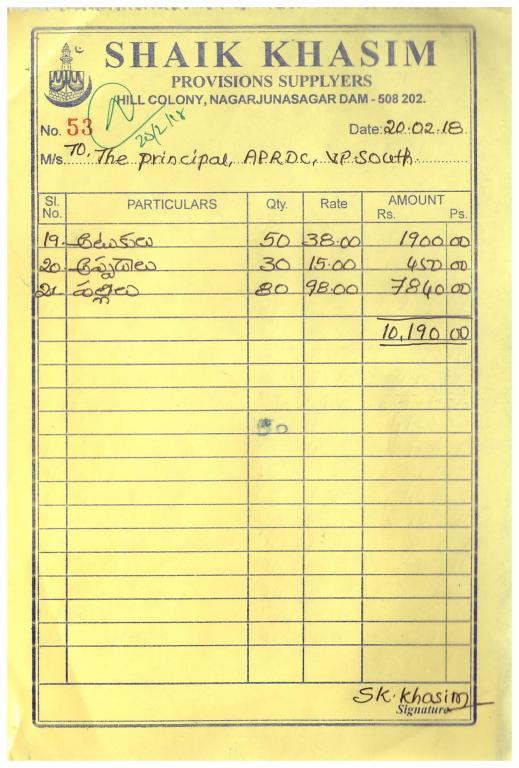 SHAIK KHASIM
PROVISIONS SUPPLYERS
HILL COLONY, NAGARJUNASAGAR DAM - 508 202.
No. 53 20/2/18 Date: 20.02.18
M/s. To, The principal, APRDC, VP. South.
Sl. No. PARTICULARS Qty. Rate AMOUNT
Rs. Ps.
19. అటుకులు 50 38.00 1900 00
20. 30 15.00 450 00
21. పల్లీలు 80 98.00 7840 00
10,190 00
50
SK. Khasim
Signature